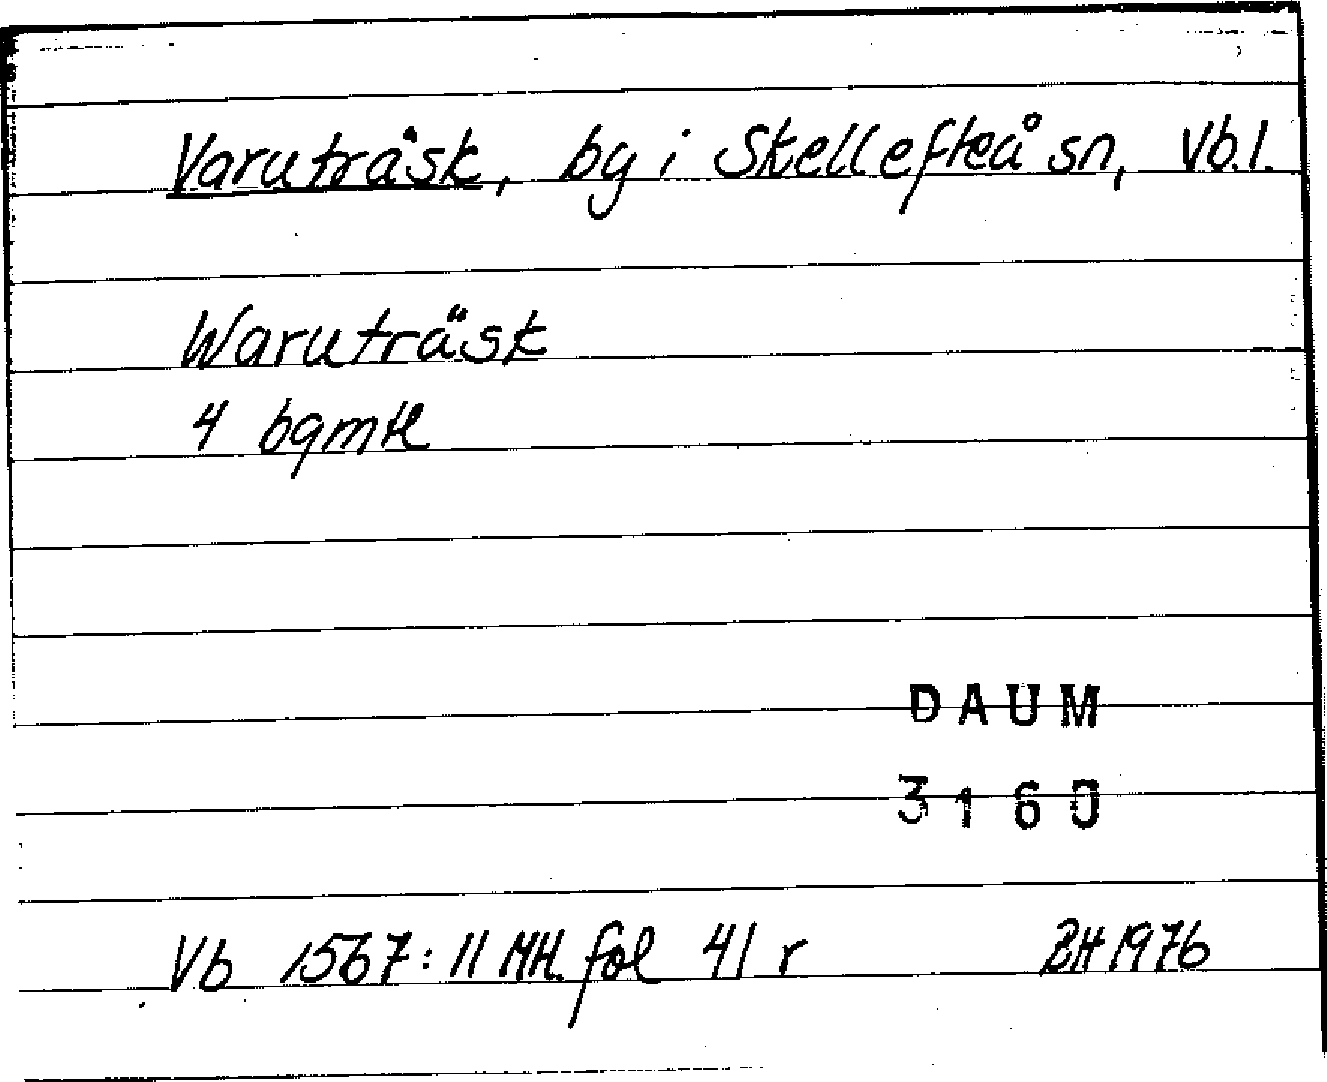 Varuträsk, by i Skellefteå sn, Vb.l.
Waruträsk
4
DAUM
3160
Vb 1567:11 MH. fol 41 r BH 1976